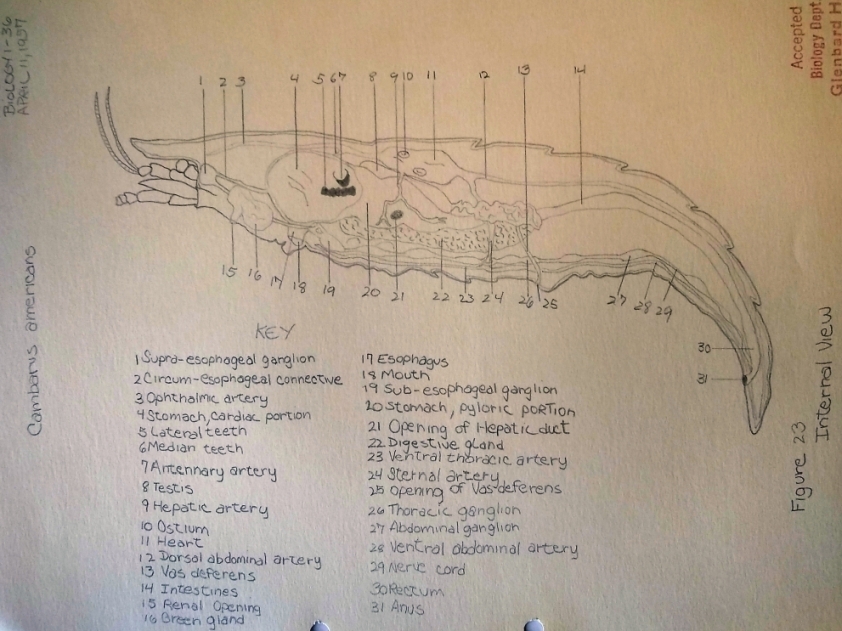 BIOLOGY 1-36
APRIL 11, 1957
Accepted
Biology Dept.
Glenbard H
1 2 3 4 5 6 7 8 9 10 11 12 13 14
15 16 17 18 19 20 21 22 23 24 26 25 27 28 29
30
31
Cambarus americans
Figure 23
Internal View
KEY
1 Supra-esophageal ganglion
2 Circum-esophageal connective
3 Ophthalmic artery
4 Stomach, cardiac portion
5 Lateral teeth
6 Median teeth
7 Antennary artery
8 Testis
9 Hepatic artery
10 Ostium
11 Heart
12 Dorsal abdominal artery
13 Vas deferens
14 Intestines
15 Renal Opening
16 Green gland
17 Esophagus
18 Mouth
19 Sub-esophageal ganglion
20 Stomach, pyloric portion
21 Opening of Hepatic duct
22 Digestive gland
23 Ventral thoracic artery
24 Sternal artery
25 opening of Vas deferens
26 Thoracic ganglion
27 Abdominal ganglion
28 Ventral abdominal artery
29 Nerve cord
30 Rectum
31 Anus